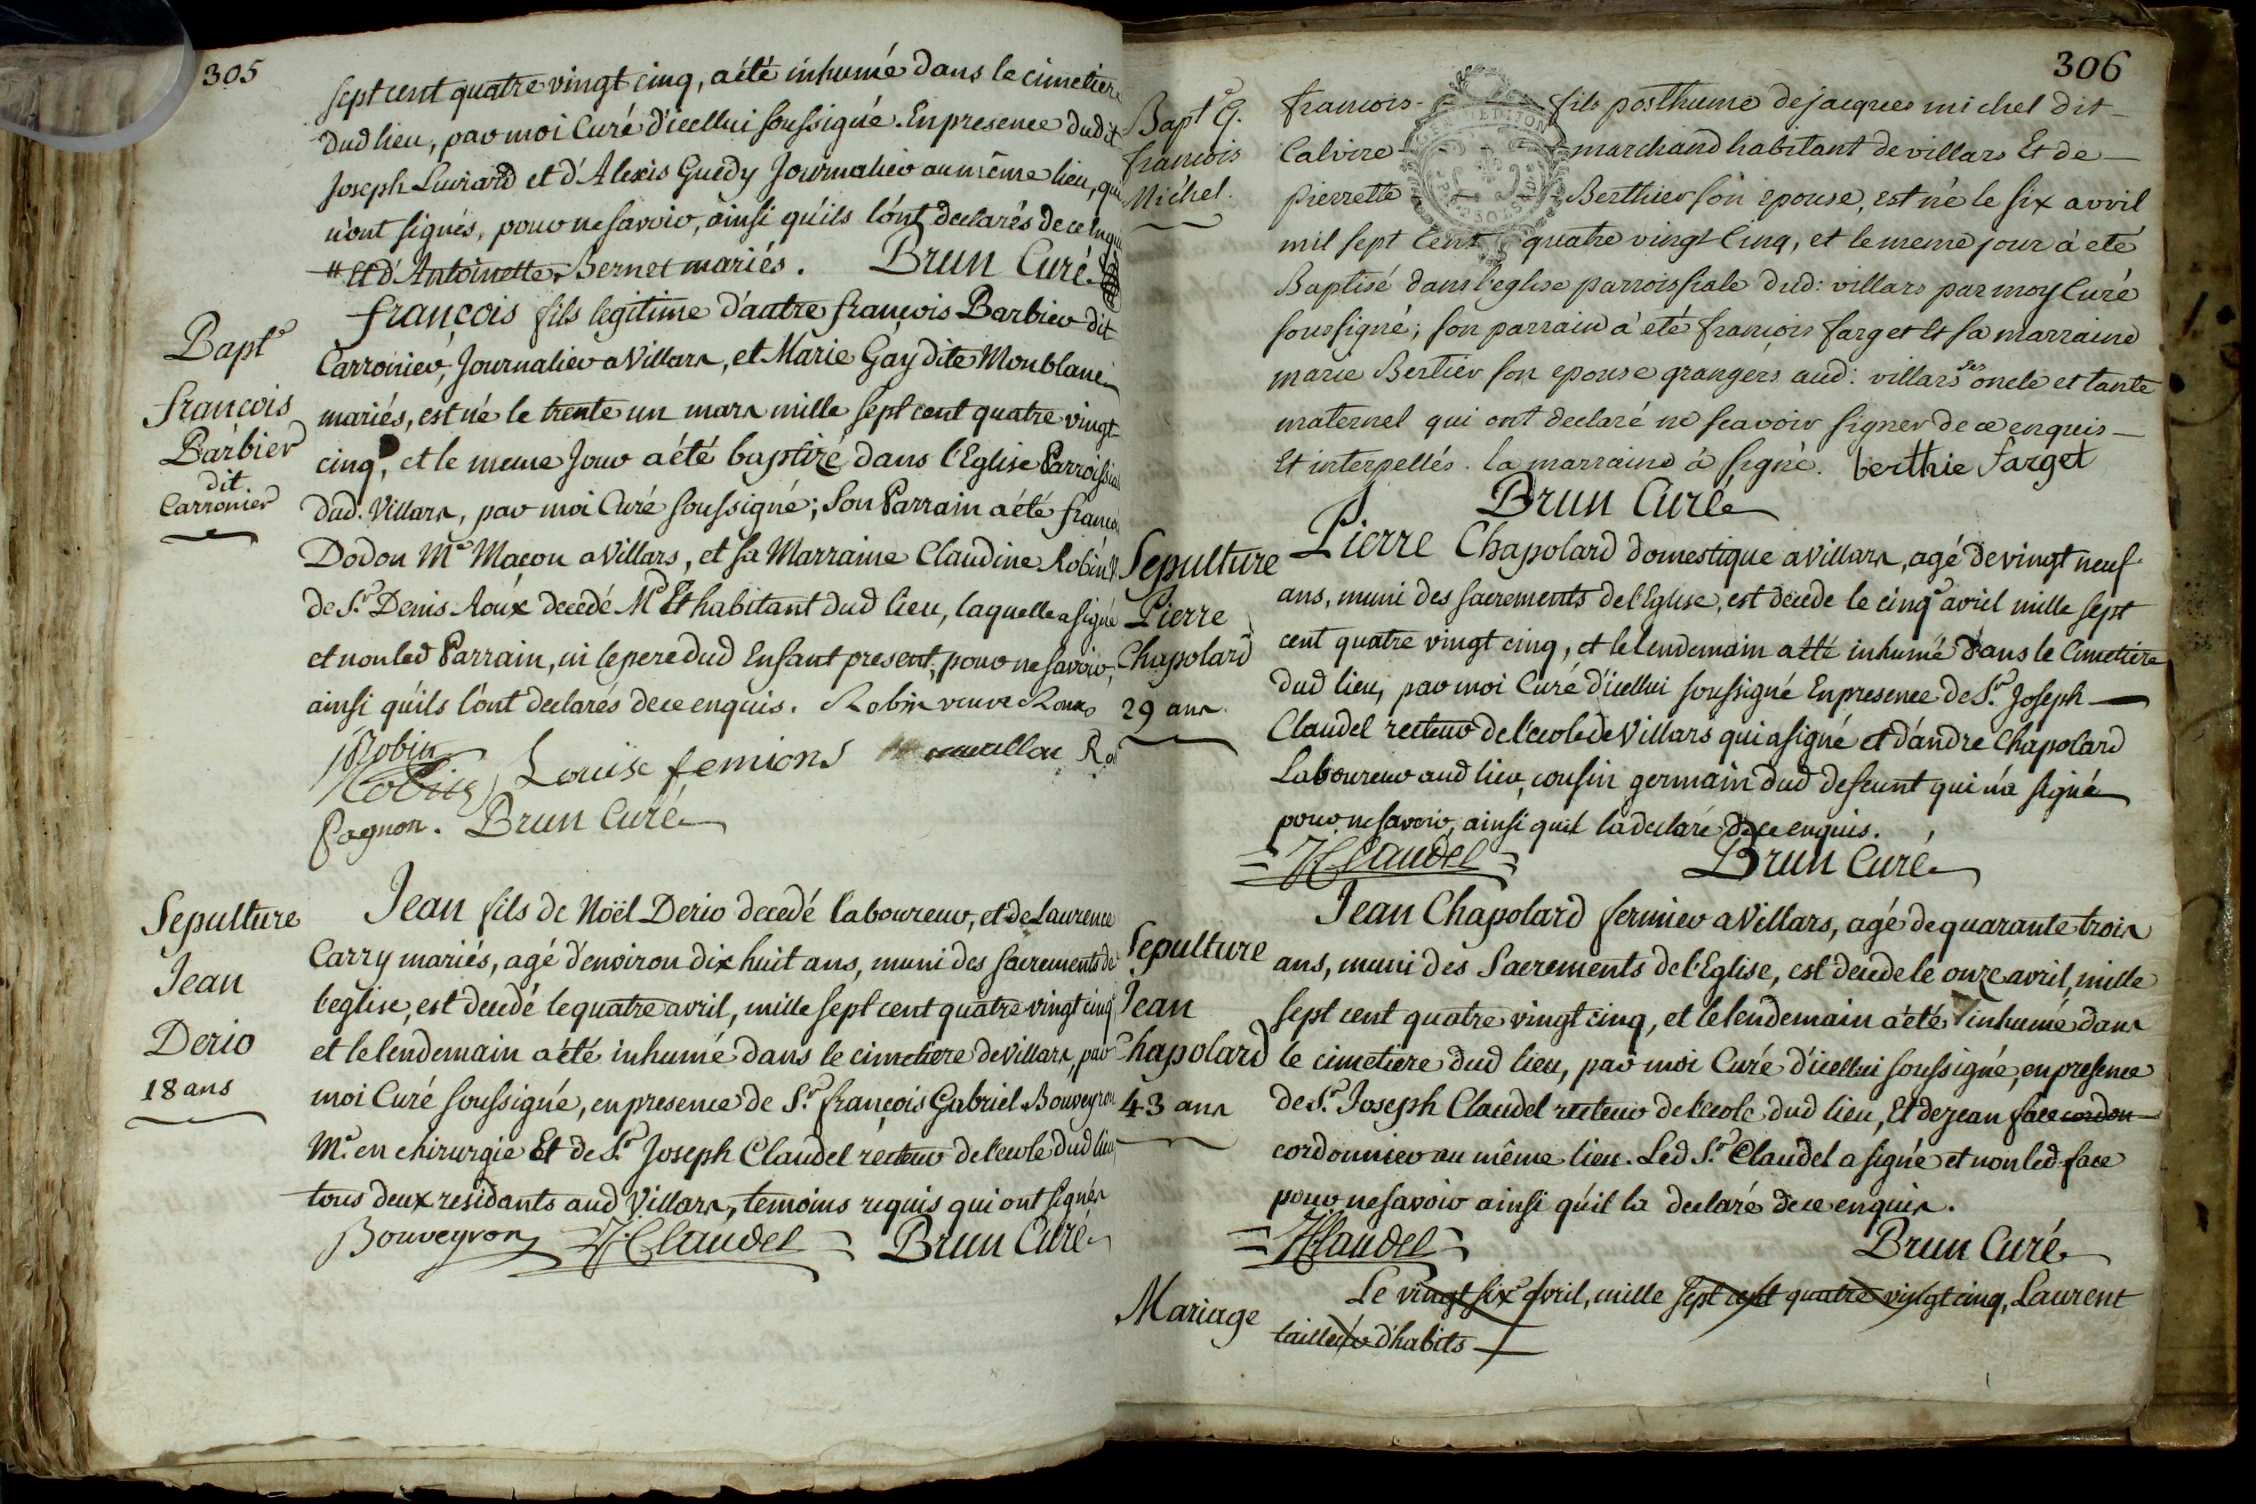 305
sept cent quatre vingt cinq, a été inhumé dans le cimetiere
dud lieu, par moi Curé d'icellui soussigné. En presence dudit
Joseph Luirard et d'Alexis Guedy Journalier au même lieu, qui
n'ont signés, pour ne savoir, ainsi qu'ils l'ont declarés de ce enquis
" Et d'Antoinette Bernet mariés. Brun Curé
Bapt^e
françois
Barbier
dit
Carronier
françois fils legitime d'autre françois Barbier dit
Carronier, Journalier a Villars, et Marie Gay dite Monblanc
mariés, est né le trente un mars mille sept cent quatre vingt
cinq, et le meme Jour a été baptizé dans l'Eglise Parroissiale
dud. Villars, par moi Curé soussigné; Son Parrain a été franço
Dodon M^e Maçon a Villars, et sa Marraine Claudine Robin V
de S^r Denis Roux decedé M^d Et habitant dud lieu, laquelle a signé
et non led Parrain, ni le pere dud Enfant present, pour ne savoir,
ainsi qu'ils l'ont declarés de ce enquis. Robin veuve Roux
Robin
Robin Louise femions Ro
pagnon. Brun Curé
Sepulture
Jean
Derio
18 ans
Jean fils de Noël Derio decedé laboureur, et de Laurence
Carry mariés, agé d'environ dix huit ans, muni des sacrements de
l'eglise, est decedé le quatre avril, mille sept cent quatre vingt cinq
et le lendemain a été inhumé dans le cimetiere de Villars, par
moi Curé soussigné, en presence de S^r françois Gabriel Bouveyron
M^e en chirurgie Et de S^r Joseph Claudel recteur de l'ecole dud lieu,
tous deux residants aud Villars, temoins requis qui ont signés
Bouveyron Claudel Brun Curé
306
Bapt^e
françois
Michel.
francois fils posthume de jacques michel dit
Calvire marchand habitant de villars Et de
pierrette Berthier son epouse, est né le six avril
mil sept Cent quatre vingt Cinq, et le meme jour à eté
Baptisé dans l'eglise parroissiale dud: villars par moy Curé
soussigné; son parrain à eté francois farget Et sa marraine
marie Bertier son epouse grangers aud: villars ses oncle et tante
maternel qui ont declaré ne scavoir signer de ce enquis
Et interpellés. la marraine à signé. berthie farget
Brun Curé
Sepulture
Pierre
Chapolard
29 ans.
Pierre Chapolard domestique a Villars, agé de vingt neuf
ans, muni des sacrements de l'Eglise, est decedé le cinq avril mille sept
cent quatre vingt cinq, et le lendemain a été inhumé dans le Cimetiere
dud lieu, par moi Curé d'icellui soussigné En presence de S^r Joseph
Claudel recteur de l'ecole de Villars qui a signé et d'andré Chapolard
Laboureur aud lieu, cousin germain dud defeunt qui n'a signé
pour ne savoir, ainsi qu'il l'a declaré de ce enquis.
Claudel Brun Curé
Sepulture
Jean
Chapolard
43 ans
Jean Chapolard fermier a Villars, agé de quarante trois
ans, muni des Sacrements de l'Eglise, est decedé le onze avril, mille
sept cent quatre vingt cinq, et le lendemain a été inhumé dans
le cimetiere dud lieu, par moi Curé d'icellui soussigné, en presence
de S^r Joseph Claudel recteur de l'ecole dud lieu, Et de jean face cordon
cordonnier au même lieu. Led S^r Claudel a signé et non led face
pour ne savoir ainsi qu'il la declaré de ce enquis.
Claudel Brun Curé
Mariage
Le vingt six avril, mille sept cent quatre vingt cinq, Laurent
tailleur d'habits